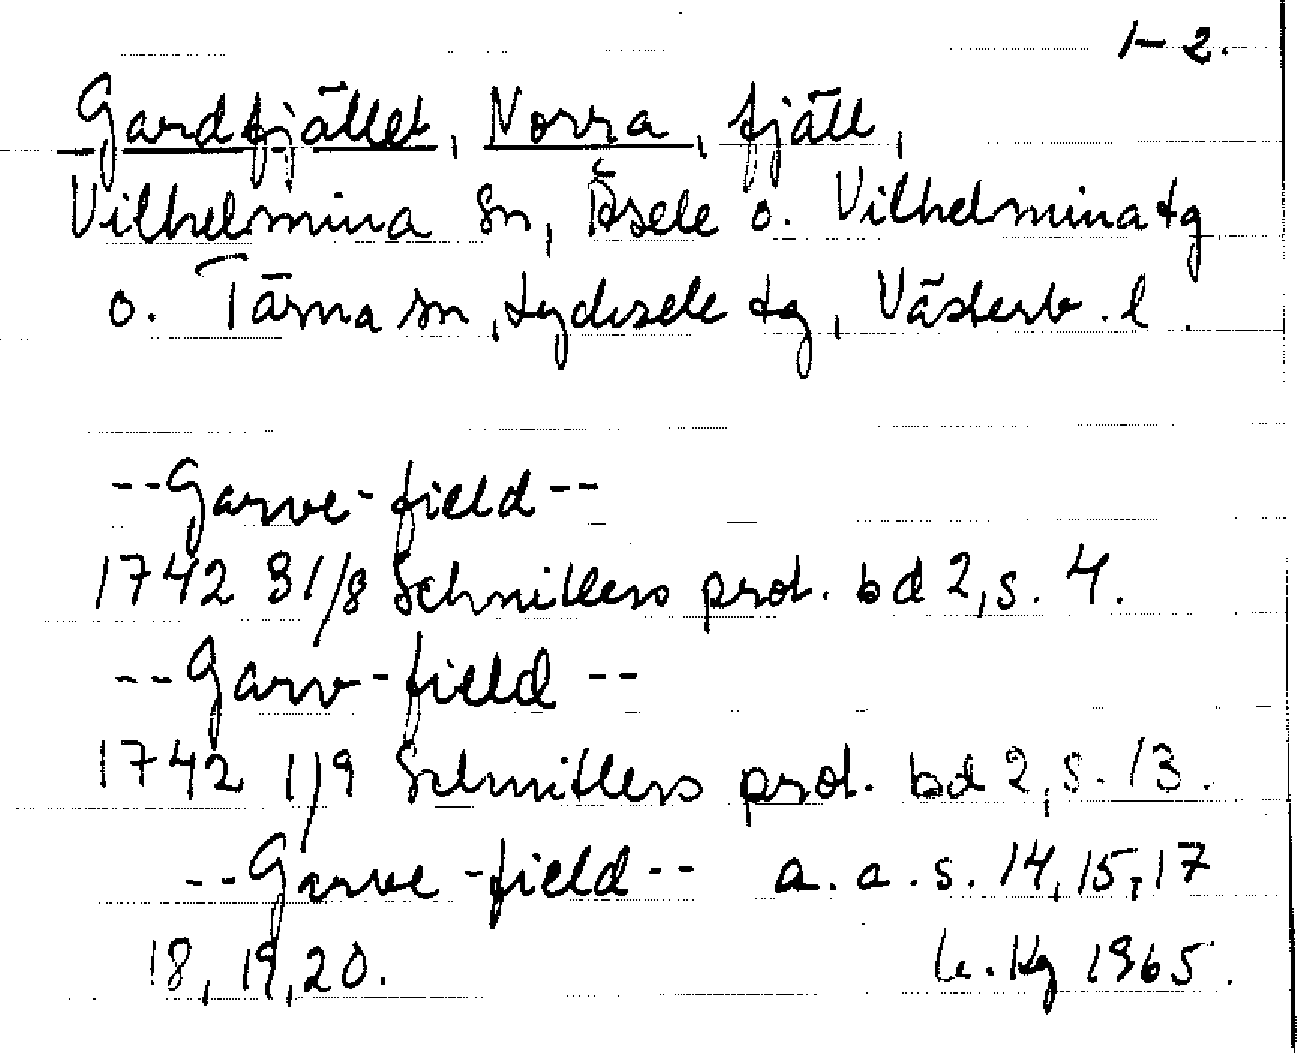 1-2.
Gardfjället, Norra, fjäll,
Vilhelmina sn, Åsele o. Vilhelmina tg
o. Tärna sn, Lycksele tg, Västerb. l.
--Garve-field--
1742 31/8 Schnitlers prot. bd 2, s. 4.
--Garv-field--
1742 1/9 Schnitlers prot. bd 2, s. 13.
--Garve-field-- a.a.s. 14, 15, 17
18, 19, 20. Kg 1965.